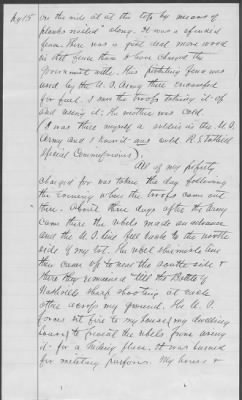 on the side at at the top by means of
planks nailed along. It was a splendid
fence. There was a good deal more wood
in that fence than I have charged the
Government with. This picketing fence was
used by the U. S. Army there encamped
for fuel. I saw the troops taking it up
and using it. The weather was cold.
(I was there myself a soldier in the U. S.
Army and I know it was cold. R. S.
Special Commissioner).
All of my property
charged for was taken the day following
the evening when the troops came out
there. About three days after the Army
came there the rebels made an advance
and the U. S. they fell back to the north
side of my lot. The rebel skirmish line
then came up to near the south side &
there they remained till the Battle of
Nashville sharp shooting at each
other across my ground. The U. S.
forces set fire to my house (my dwelling
house) to prevent the rebels from using
it for a hiding place. It was burned
for military purposes. My house &